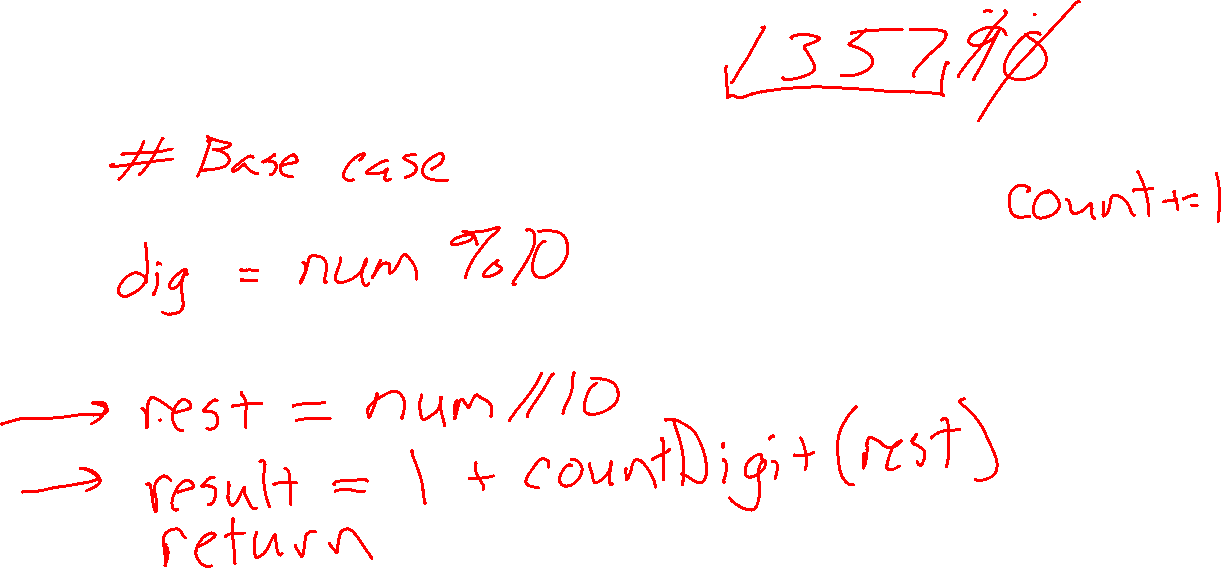 1357
# Base case
count+=1
dig = num %10
rest = num//10
result = 1 + countDigit(rest)
return